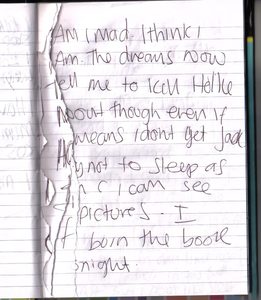 Am I mad. I think I
Am. The dreams now
tell me to kill Hollie
About though even if
means i dont get Jack
not to sleep as
I can see
pictures. I
burn the book
night.